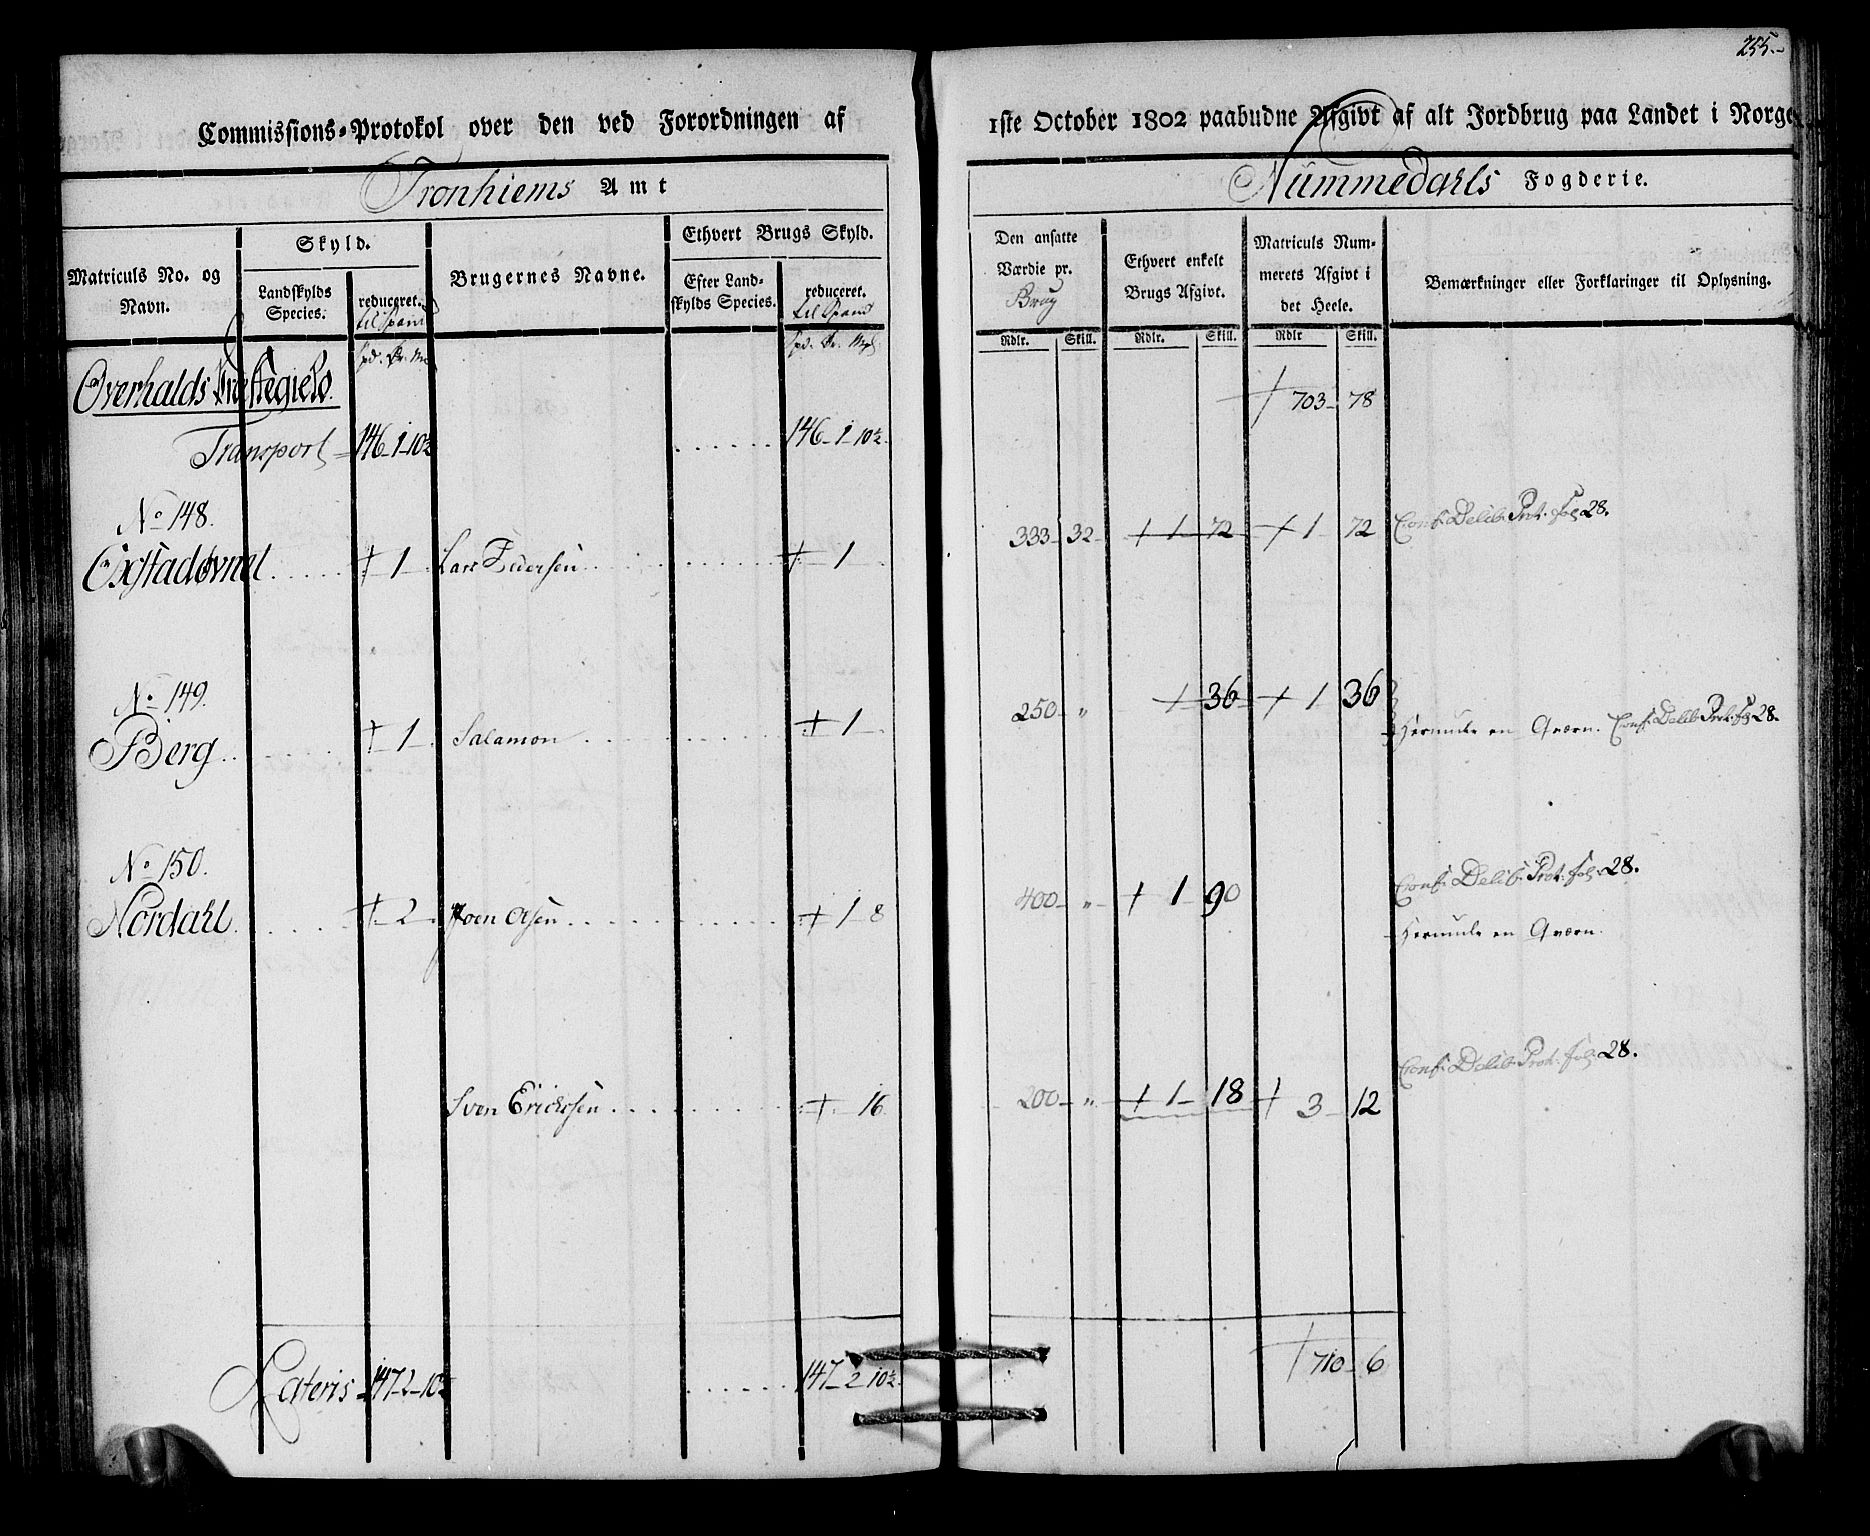 255.-
Commissions-Protokol over den ved Forordningen af 1ste October 1802 paabudne Afgivt af alt Jordbrug paa Landet i Norge
Tronhiems Amt
Nummedahls Fogderie.
Matriculs No. og Navn.
Skyld.
Landskylds Species.
reduceret. til Spand
Brugernes Navne.
Ethvert Brugs Skyld.
Efter Landskylds Species.
reduceret. til Spand
Den ansatte Værdie pr. Brug
Ethvert enkelt Brugs Afgivt.
Matriculs Nummerets Afgivt i det Heele.
Bemærkninger eller Forklaringer til Oplysning.
Rdlr. Skill. Rdlr. Skill. Rdlr Skill.
Overhalds Præstegield.
703 - 78
Transport 146-1-10½ 146-1-10½
No 148.
Oxstadøvnel 1 Lars Pedersen 1 333 - 32 - 1 - 72 1 - 72 Conf: Delib: Prot: fol: 28.
No 149.
Berg 1 Salamon 1 250 - " 36 1 36 Hermede en Qværn. Conf: Delib: Prot: fol 28.
No 150.
Nordahl 2 Joen Olsen 1 - 8 400 - " 1 - 90 Conf: Delib: Prot: fol: 28.
Hermede en Qværn.
Sven Ericksen 16 200 - " 1 - 18 3 - 12 Conf: Delib: Prot: fol: 28.
Lateris 147-2-10½ 147-2-10½ 710 - 6